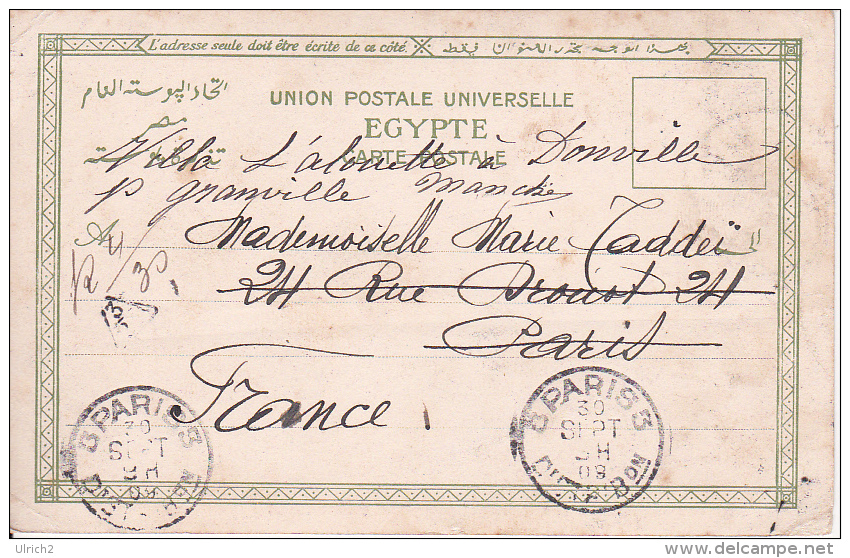 L'adresse seule doit être écrite de ce côté.
اتحاد البوسته العام
UNION POSTALE UNIVERSELLE
مصر
EGYPTE
CARTE POSTALE
Villa L'alouette à Donville
p Granville Manche
A
Mademoiselle Marie Taddeï
24 Rue Drouot 24
Paris
France
8 PARIS 3
30
SEPT
9 H
8 PARIS 3
30
SEPT
7 H
09
Ulrich2
delcampe.net